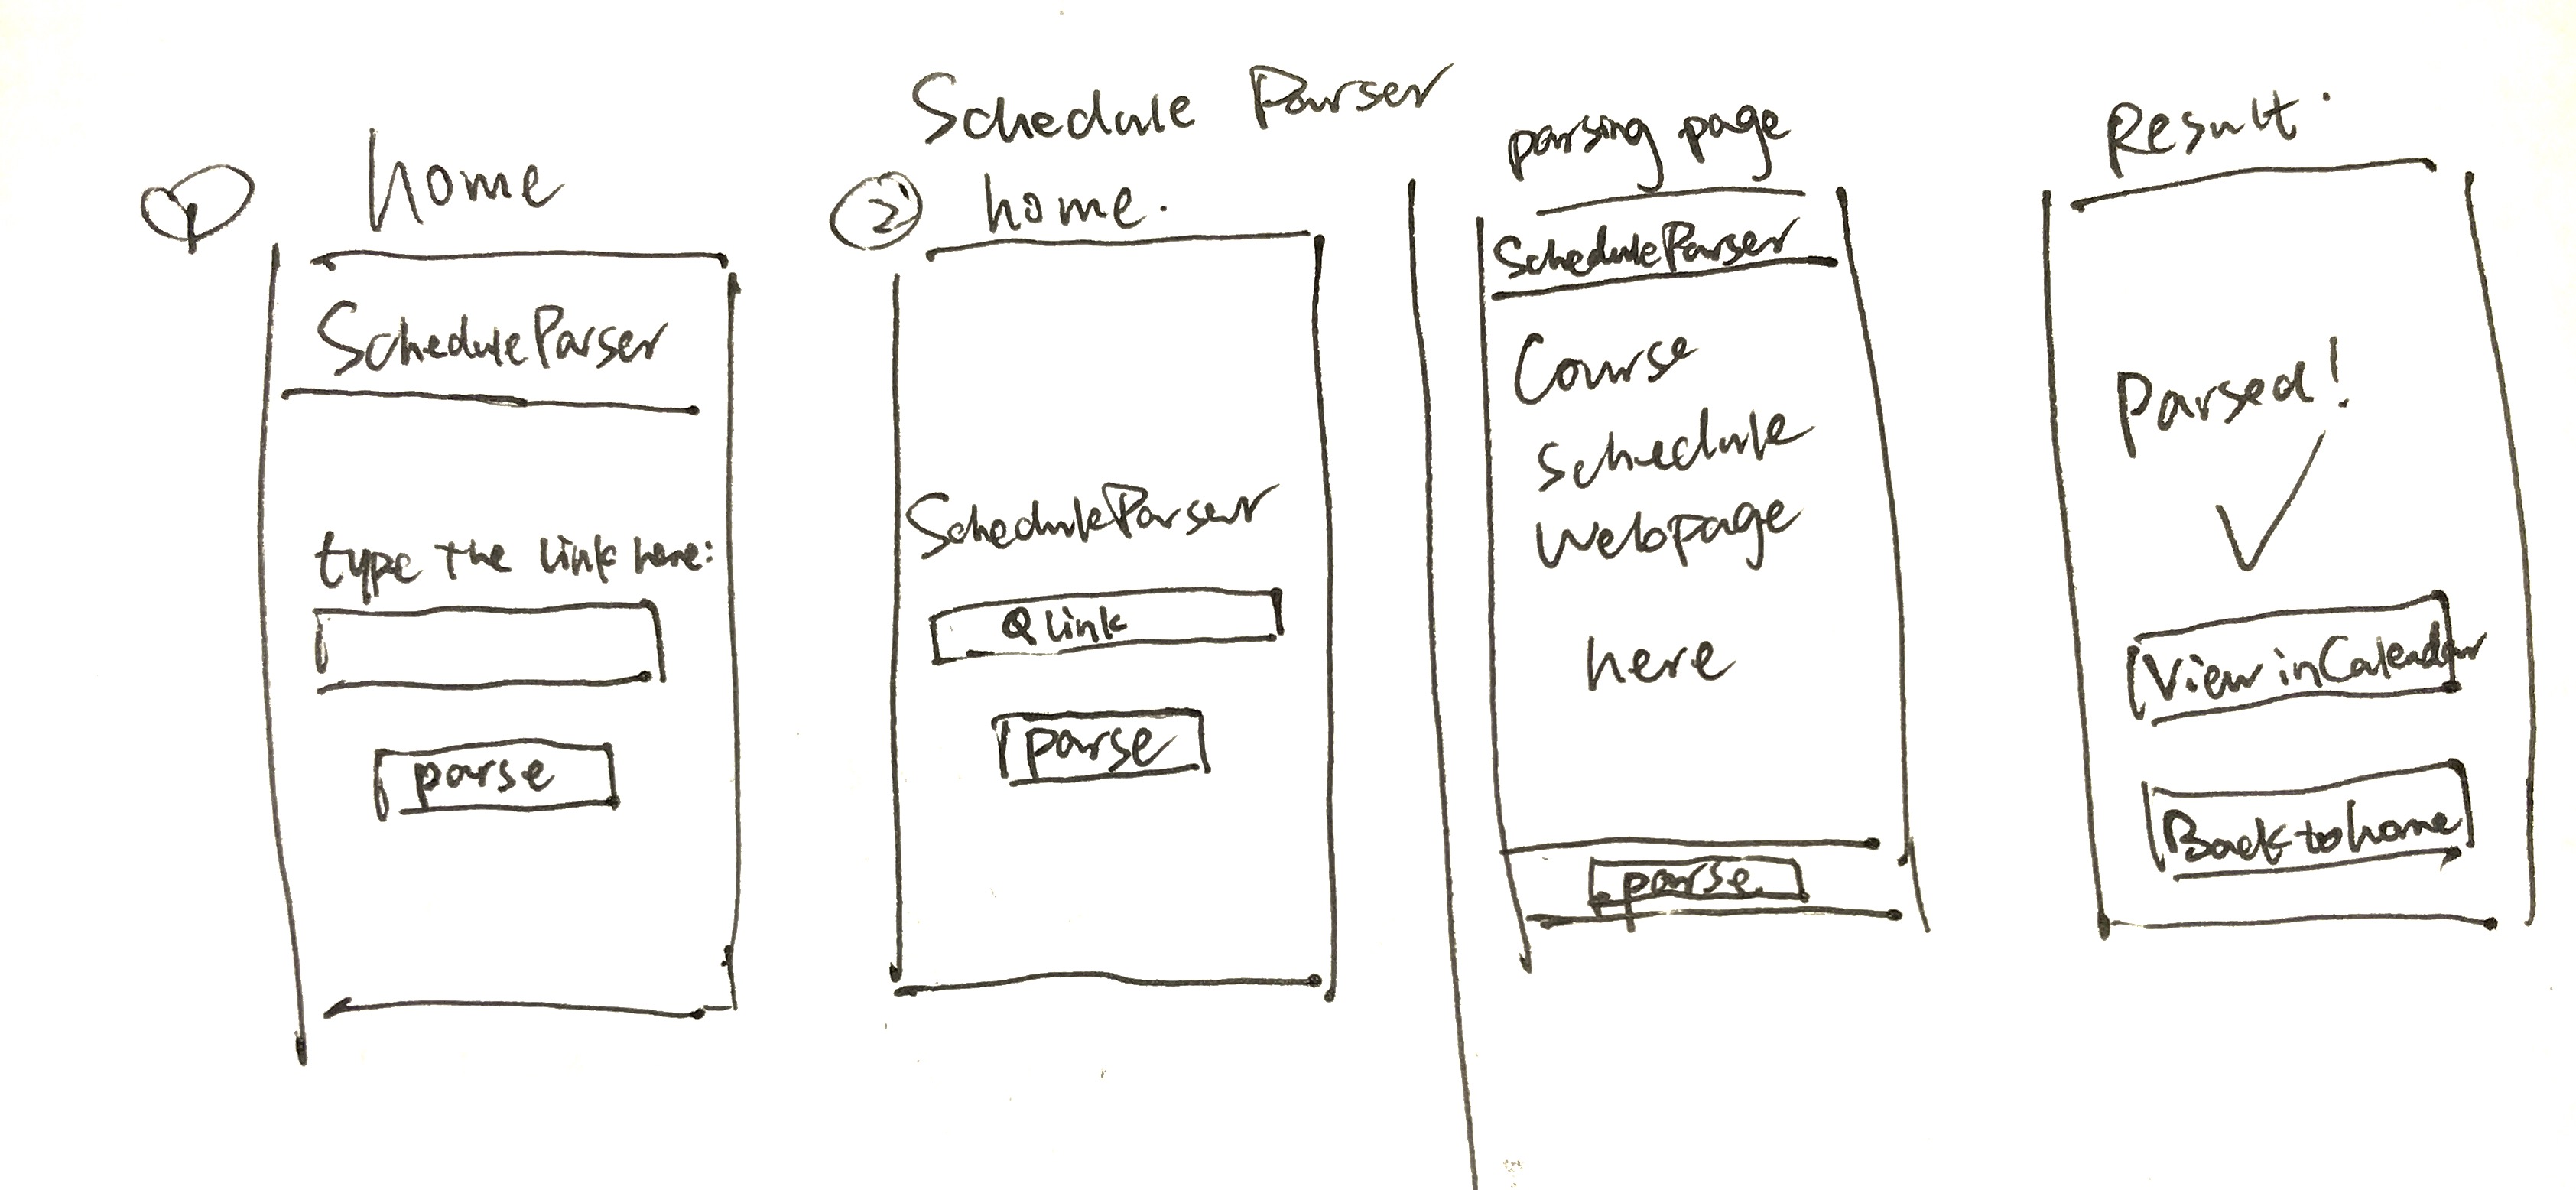 Schedule Parser
1
home
ScheduleParser
type the link here:
parse
2
home.
ScheduleParser
link
parse
parsing page
ScheduleParser
Course
Schedule
Webpage
here
parse
Result.
Parsed!
View in Calendar
Back to home